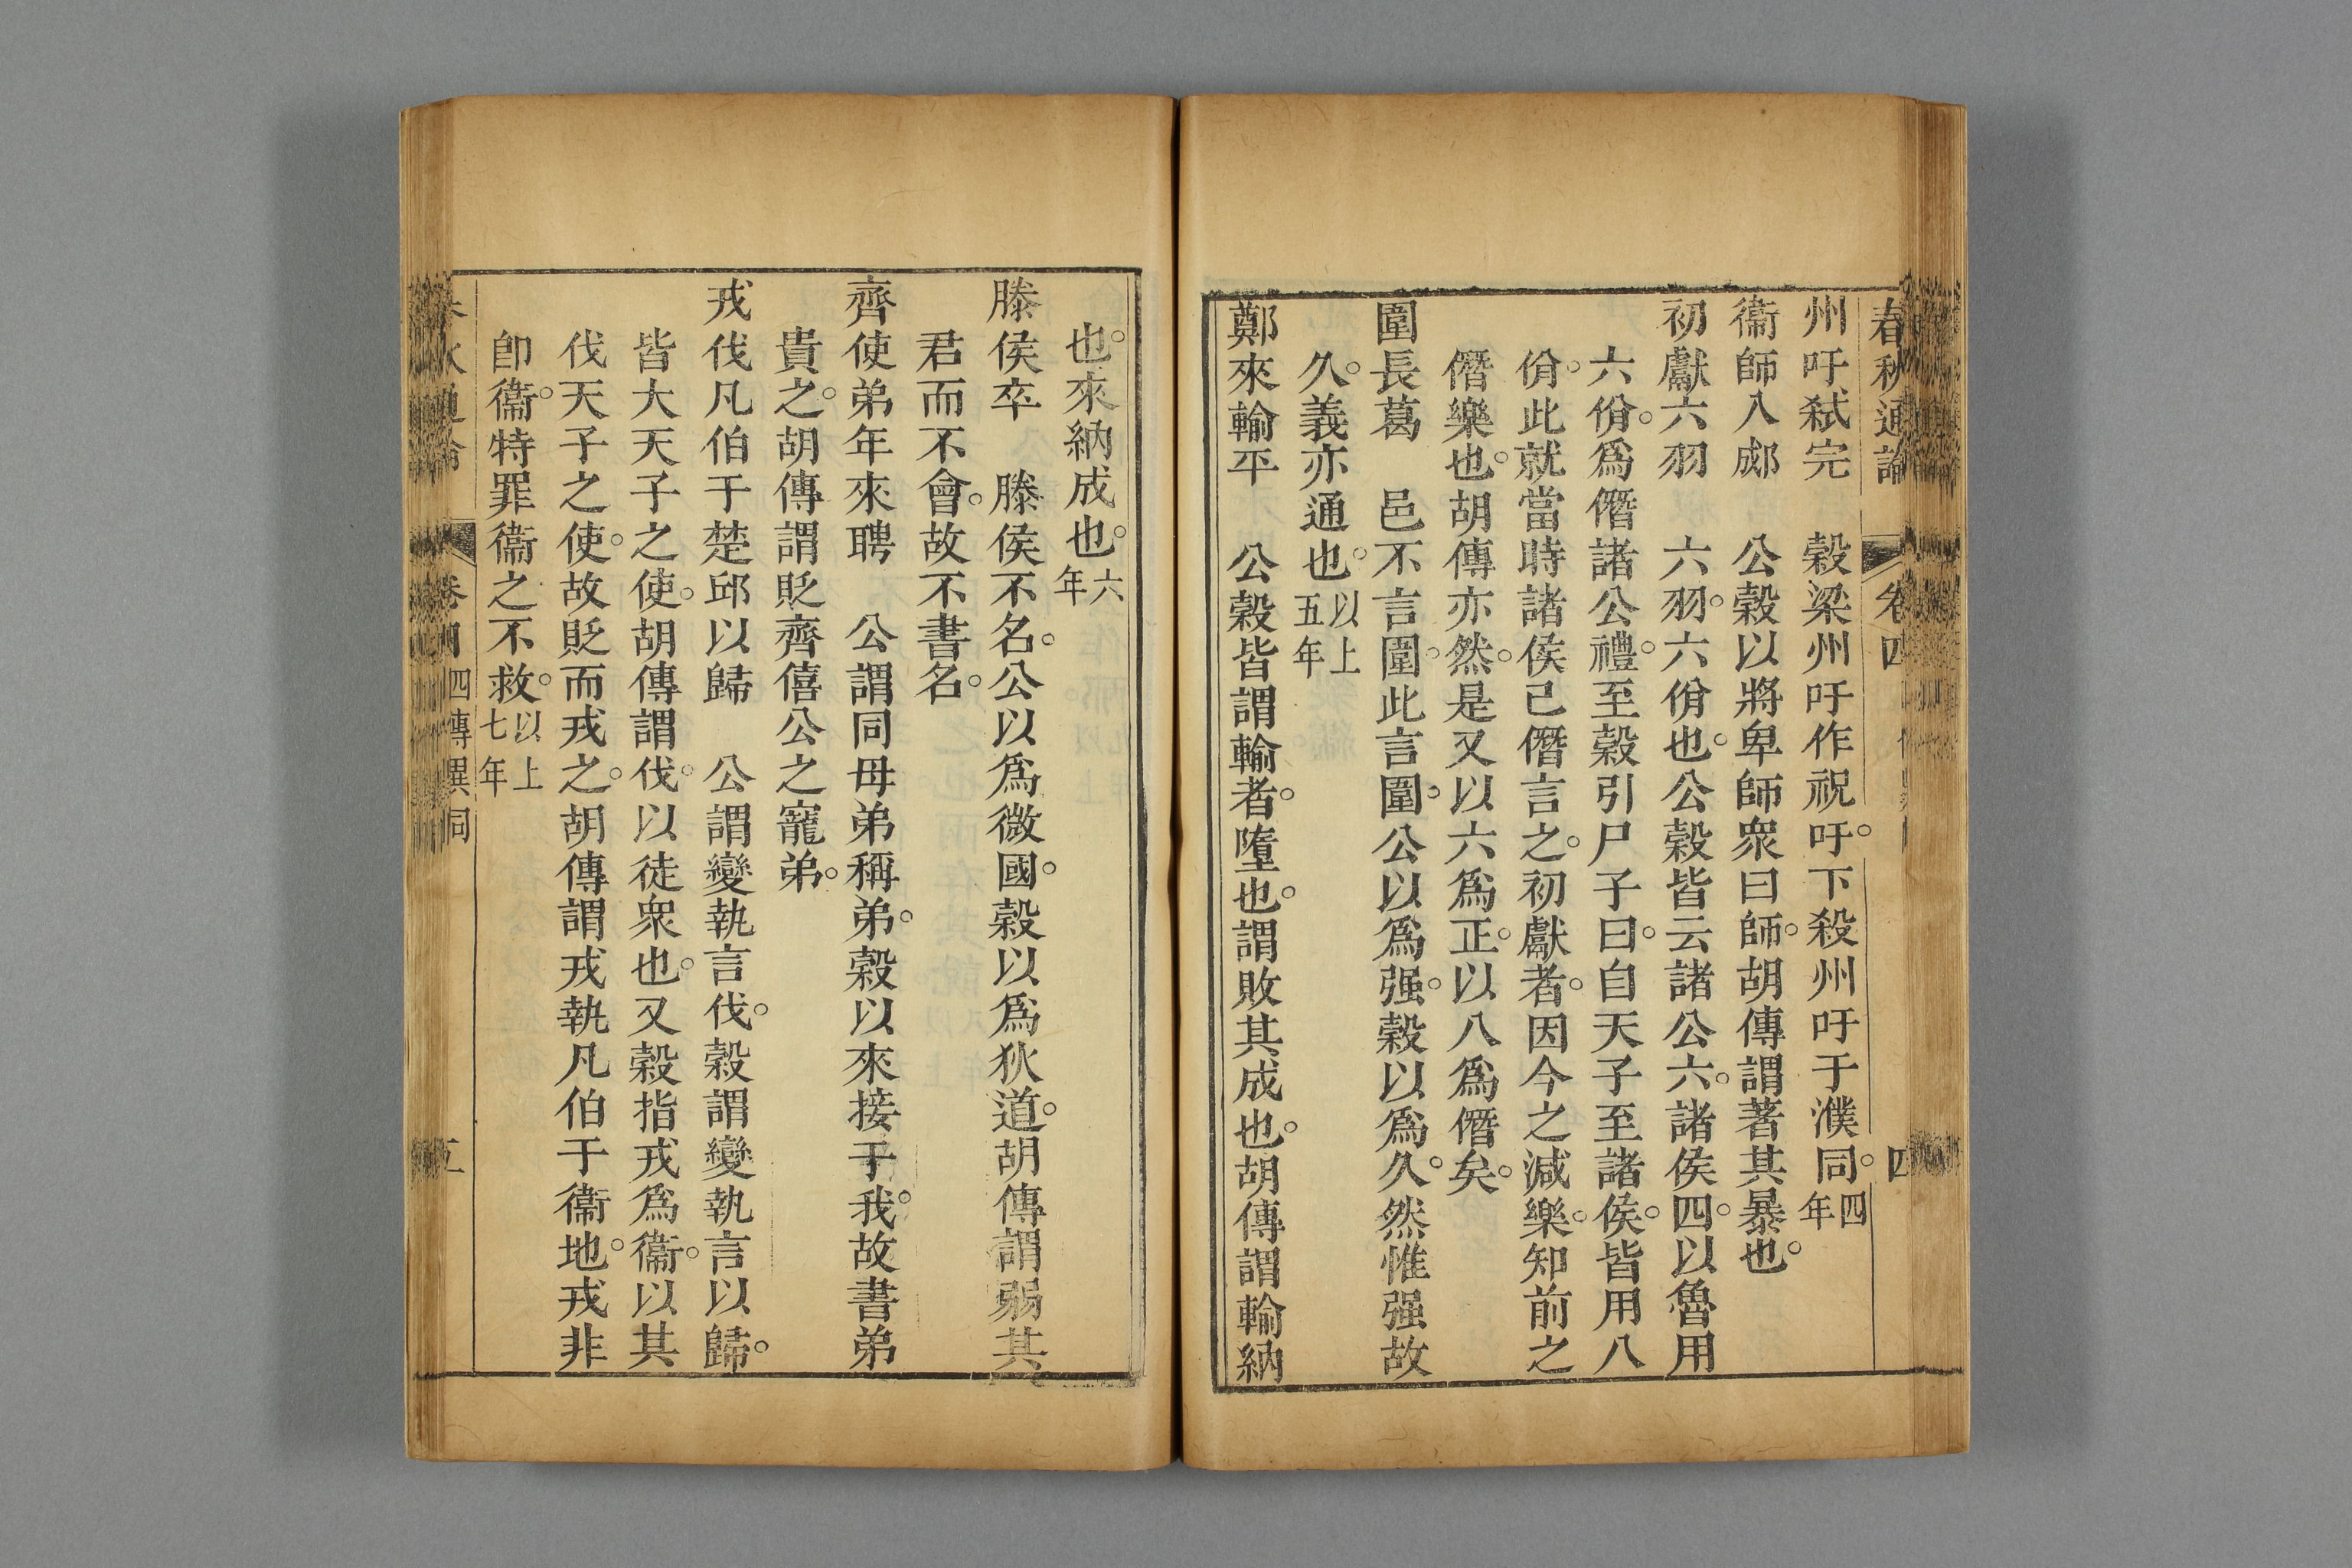 春秋通論 卷四 四
州吁弒完 穀梁州吁作祝吁。下殺州吁于濮同。四年
衞師入郕 公穀以將卑師眾曰師。胡傳謂著其暴也。
初獻六羽 六羽。六佾也。公穀皆云諸公六。諸侯四。以魯用
六佾。爲僭諸公禮。至穀引尸子曰。自天子至諸侯。皆用八
佾。此就當時諸侯已僭言之。初獻者。因今之減樂。知前之
僭樂也。胡傳亦然。是又以六爲正。以八爲僭矣。
圍長葛 邑不言圍。此言圍。公以爲强。穀以爲久。然惟强故
久。義亦通也。以上五年
鄭來輸平 公穀皆謂輸者。墮也。謂敗其成也。胡傳謂輸納
也。來納成也。六年
滕侯卒 滕侯不名。公以爲微國。穀以爲狄道。胡傳謂弱其
君而不會。故不書名。
齊使弟年來聘 公謂同母弟稱弟。穀以來接于我。故書弟
貴之。胡傳謂貶齊僖公之寵弟。
戎伐凡伯于楚邱以歸 公謂變執言伐。穀謂變執言以歸。
皆大天子之使。胡傳謂伐。以徒眾也。又穀指戎爲衞。以其
伐天子之使。故貶而戎之。胡傳謂戎執凡伯于衞地。戎非
卽衞。特罪衞之不救。以上七年
卷四 四傳異同 五